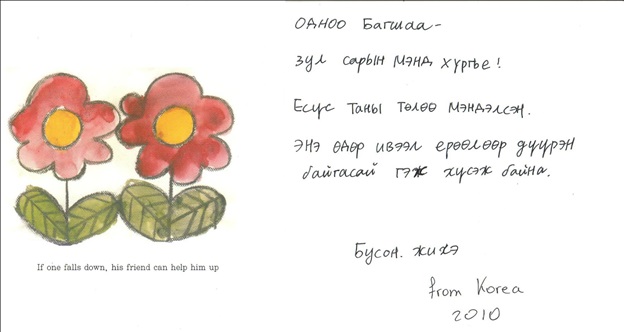 If one falls down, his friend can help him up
Одноо Багшаа-
Зул сарын мэнд хүргье!
Есүс Таны төлөө мэндэлсэн.
Энэ өдөр ивээл ерөөлөөр дүүрэн
байгасай гэж хүсэж байна.
Бусон. жихэ
from Korea
2010